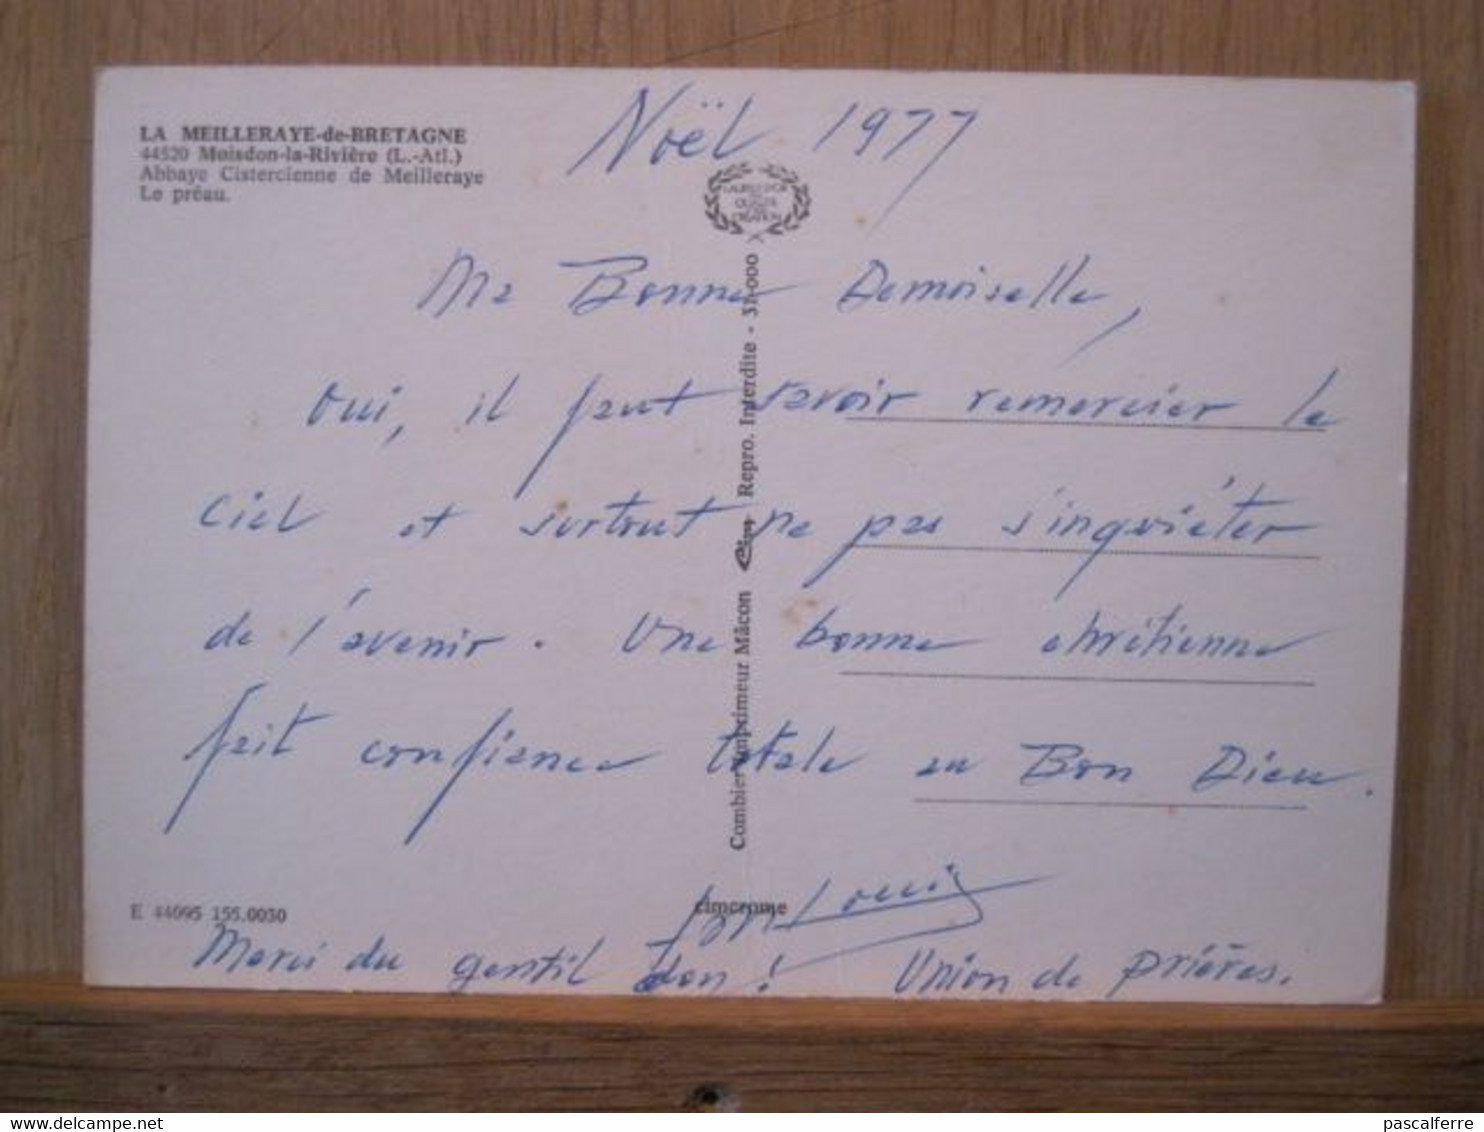 LA MEILLERAYE-de-BRETAGNE
44520 Moisdon-la-Rivière (L.-Atl.)
Abbaye Cistercienne de Meilleraye
Le préau.
Noël 1977
Ma Bonne Demoiselle,
Oui, il faut savoir remercier le
Ciel et surtout ne pas s'inquiéter
de l'avenir. Une bonne chrétienne
fait confiance totale au Bon Dieu.
Louis
Merci du gentil don ! Union de prières.
Combier Imprimeur Mâcon Repro. Interdite - 31-000
E 44095 155.0030
cimcrome
delcampe.net
pascalferre